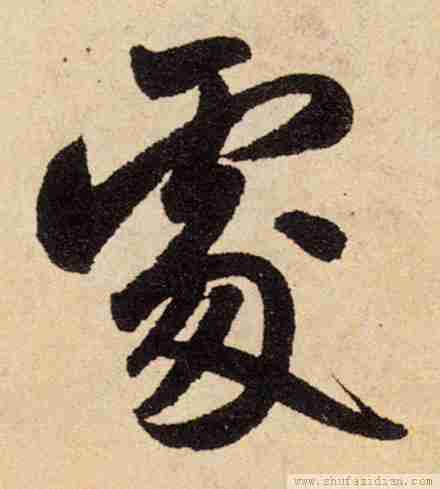 處
www.shufazidian.com